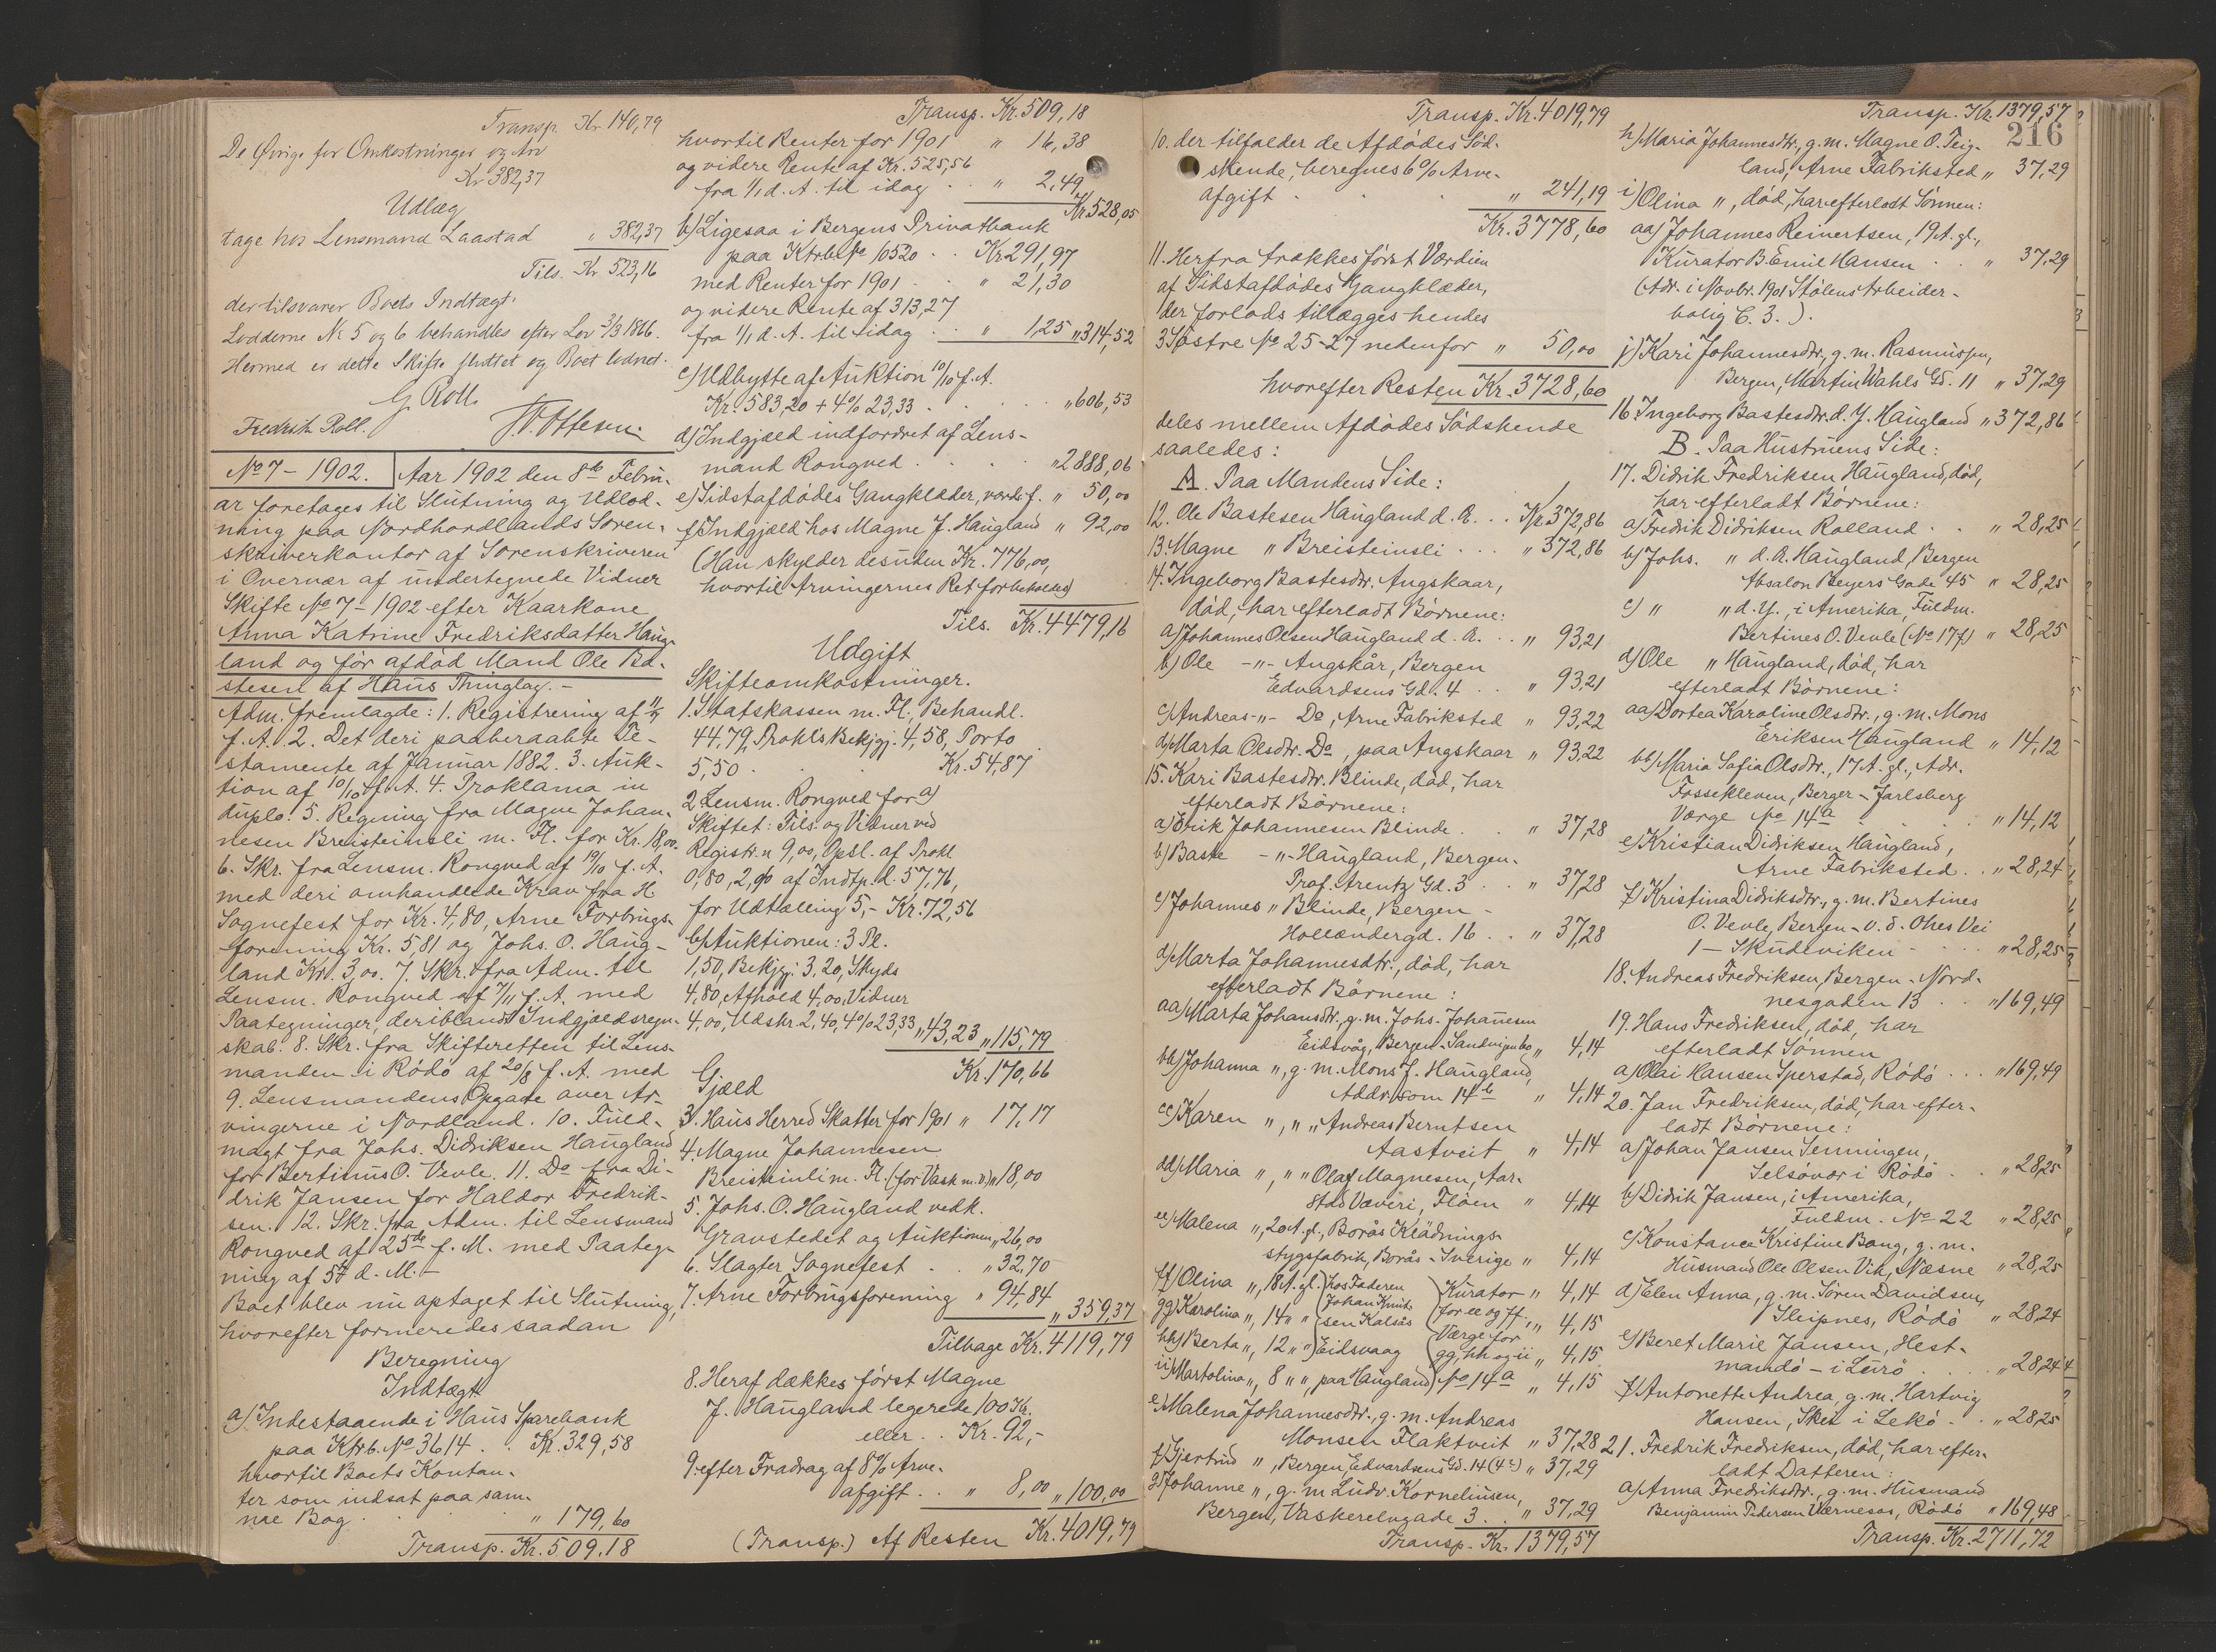 Transp. Kr. 140,79
De Øvrige for Omkostninger og Arv
Kr 382,37
Udlæg
tage hos Lensmand Laastad " 382,37
Tils. Kr 523,16
der tilsvarer Boets Indtægt.
Lodderne No 5 og 6 behandles efter Lov 3/3 1866.
Hermed er dette Skifte sluttet og Boet lodnet.
G. Roll
Fredrik Roll.
No 7 - 1902. Aar 1902 den 8de Febru-
ar foretages til Slutning og Udlod-
ning paa Nordhordlands Soren-
skriverkontor af Sorenskriveren
i Overvær af undertegnede Vidner
Skifte No 7 - 1902 efter Kaarkone
Anna Katrine Fredriksdatter Haug-
land og før afdød Mand Ole Ba-
stesen af Haus Thinglag. -
Adm. fremlagde: 1. Registrering af 11/9
f. A. 2. Det deri paaberaabte Te-
stamente af Januar 1882. 3. Auk-
tion af 10/10 f. A. 4. Proklama in
duplo. 5. Regning fra Magne Johan-
nesen Breisteinsli m. Fl. for Kr. 18,00.
6. Skr. fra Lensm. Rongved af 19/10 f. A.
med deri omhandlede Krav fra H.
Sognefest for Kr. 4,80, Arne Forbrugs-
forening Kr. 5,81 og Johs. O. Haug-
land Kr. 3,00. 7. Skr. fra Adm. til
Lensm. Rongved af 7/11 f. A. med
Paategninger, deriblandt Indgjældsregn-
skab. 8. Skr. fra Skifteretten til Lens-
manden i Rödö af 20/8 f. A. med
9. Lensmandens Opgave over Ar-
vingerne i Nordland. 10. Fuld-
magt fra Johs. Didriksen Haugland
for Bertinus O. Vevle. 11. Do fra Di-
drik Jansen for Haldor Fredrik-
sen. 12. Skr. fra Adm. til Lensmand
Rongved af 25de f. M. med Paateg-
ning af 5te d. M. -
Boet blev nu optaget til Slutning,
hvorefter formeredes saadan
Beregning
Indtægt
a) Indestaaende i Haus Sparebank
paa Ktrb. No 3614 . . Kr. 329,58
hvortil Boets Kontan-
ter som indsat paa sam-
me Bog . . " 179,60
Transp. Kr. 509,18
Transp. Kr. 509,18
hvortil Renter for 1901 " 16,38
og videre Rente af Kr. 525,56
fra 1/1 d. A. til idag . . " 2,49
Kr. 528,05
b) Ligesaa i Bergens Privatbank
paa Ktrb. No 10520 . . Kr 291,97
med Renter for 1901 . " 21,30
og videre Rente af 313,27
fra 1/1 d. A. til idag . . " 1,25 " 314,52
c) Udbytte af Auktion 10/10 f. A.
Kr. 583,20 + 4% 23,33 . . . " 606,53
d) Indgjæld indfordret af Lens-
mand Rongved . . . " 2888,06
e) Sidstafdødes Gangklæder, værds f. " 50,00
f) Indgjæld hos Magne J. Haugland " 92,00
(Han skylder desuden Kr. 776,00,
hvortil Arvingernes Ret forbeholdes)
Tils. Kr. 4479,16
Udgift
Skifteomkostninger.
1. Statskassen m. Fl., Behandl.
44,79, Prokl's Bekjgj. 4,58, Porto
5,50 . . Kr. 54,87
2. Lensm. Rongved for a)
Skiftet: Tils. og Vidner ved
Registr. n 9,00, Opsl. af Prokl
0,80, 2,00 af Indtp. d. 57,76,
for Udtælling 5,- Kr. 72,56
b) Auktionen: 3 Pl.
1,50, Bekjgj. 3,20, Skyds
4,80, Afhold 4,00, Vidner
4,00, Udskr. 2,40, 4% 23,33 " 43,23 " 115,79
Kr. 170,66
Gjæld
3. Haus Herred Skatter for 1901 " 17,17
4. Magne Johannesen
Breisteinli m. Fl. (for Vask m. v.) " 18,00
5. Johs. O. Haugland vedk.
Gravstedet og Auktionen " 26,00
6. Slagter Sognefest . . " 32,70
7. Arne Forbrugsforening " 94,84
" 359,37
Tilbage Kr. 4119,79
8. Heraf dækkes først Magne
J. Haugland legerede 100 Kr.
eller . . Kr. 92,-
9. efter Fradrag af 8% Arve-
afgift . . " 8,00 " 100,00
(Transp.) Af Resten Kr. 4019,79
Transp. Kr. 4019,79
10. der tilfalder de Afdødes Sød-
skende, beregnes 6% Arve-
afgift . . . " 241,19
Kr. 3778,60
11. Herfra trækkes først Værdien
af Sidstafdødes Gangklæder,
der forlods tillægges hendes
3 Søstre No 25-27 nedenfor " 50,00
hvorefter Resten Kr. 3728,60
deles mellem Afdødes Sødskende
saaledes:
A. Paa Mandens Side:
12. Ole Bastesen Haugland d. Æ. . . Kr 372,86
13. Magne " Breisteinsli . . . " 372,86
14. Ingeborg Bastesdtr. Angskaar,
død, har efterladt Børnene:
a) Johannes Olsen Haugland d. Æ. . . " 93,21
b) Ole -"- Angskår, Bergen
Edvardsens Gd. 4 . . " 93,21
c) Andreas -"- Do, Arne Fabriksted " 93,22
d) Marta Olsdtr. Do, paa Angskaar " 93,22
15. Kari Bastesdtr. Blinde, død, har
efterladt Børnene:
a) Erik Johannesen Blinde . . " 37,28
b) Baste -"- Haugland, Bergen-
Prof. Arentz Gd. 3 . . " 37,28
c) Johannes " Blinde, Bergen -
Hollændergd. 16 . . " 37,28
d) Marta Johannesdtr., død, har
efterladt Børnene:
aa) Marta Johansdtr., g. m. Johs. Johannesen
Eidsvåg, Bergen - Sandvigen 60 " 4,14
bb) Johanna ", g. m. Mons J. Haugland,
Addr. som 14 b " 4,14
cc) Karen ", " " Andreas Berntsen
Aastveit " 4,14
dd) Maria ", " " Olaf Magnesen, Aar-
stad Væveri, Fløen " 4,14
ee) Malena ", 20 A. gl., Borås Klädnings-
stygsfabrik, Borås - Sverige " 4,14
ff) Olina ", 18 A. gl. hos Faderen Kurator " 4,14
gg) Karolina ", 14 " " Johan Knut- for ee og ff, " 4,15
sen Kalsås
hh) Berta ", 12 " " Eidsvaag Værge for gg, hh og ii " 4,15
ii) Martolina ", 8 " ", paa Haugland No 14 a " 4,15
e) Malena Johannesdtr., g. m. Andreas
Monsen Flaktveit " 37,28
f) Gjertrud ", Bergen, Edvardsens Gd. 14 " 37,29
g) Johanne ", g. m. Ludv. Korneliusen,
Bergen, Vaskerelvgade 3 . . " 37,29
Transp. Kr. 1379,57
Transp. Kr. 1379,57
216
h) Maria Johannesdtr., g. m. Magne O. Teig-
land, Arne Fabriksted " 37,29
i) Olina ", død, har efterladt Sønnen:
aa) Johannes Reinertsen, 19 A. gl.,
Kurator B. Emil Hansen . . " 37,29
(Adr. i Novbr. 1901 Stølens Arbeider-
bolig C. 3.).
j) Kari Johannesdtr., g. m. Rasmussen,
Bergen, Martin Wahls Gd. 11 " 37,29
16. Ingeborg Bastesdtr. d. Y. Haugland " 372,86
B. Paa Hustruens Side:
17. Didrik Fredriksen Haugland, død,
har efterladt Børnene:
a) Fredrik Didriksen Rolland . . " 28,25
b) Johs. " d. Æ. Haugland, Bergen
Absalon Beyers Gade 45 " 28,25
c) " " d. Y., i Amerika, Fuldm.
Bertines O. Vevle (No 17 f) " 28,25
d) Ole " Haugland, død, har
efterladt Børnene:
aa) Dortea Karoline Olsdtr., g. m. Mons
Eriksen Haugland " 14,12
bb) Maria Sofia Olsdtr., 17 A. gl., Adr.
Fossekleven, Berger - Jarlsberg
Værge No 14 a . . " 14,12
e) Kristian Didriksen Haugland,
Arne Fabriksted . . " 28,24
f) Kristina Didriksdtr., g. m. Bertines
O. Vevle, Bergen - v. d. Ohes Vei
1 - Skudeviken . . " 28,25
18. Andreas Fredriksen, Bergen - Nord-
nesgaden 13 . . " 169,49
19. Hans Fredriksen, død, har
efterladt Sønnen
a) Olai Hansen Sperstad, Rødø . . . " 169,49
20. Jan Fredriksen, død, har efter-
ladt Børnene:
a) Johan Jansen Senningen,
Selsøvær i Rødø . . " 28,25
b) Didrik Jansen, i Amerika,
Fuldm. No 22 " 28,25
c) Konstance Kristine Bang, g. m.
Husmand Ole Olsen Vik, Næsne " 28,25
d) Elen Anna, g. m. Søren Davidsen,
Sleipnes, Rødø " 28,24
e) Beret Marie Jansen, Hest-
mandø - i Lurø . . " 28,24
f) Antonette Andrea, g. m. Hartvig
Hansen, Skei i Lekø . . " 28,25
21. Fredrik Fredriksen, død, har efter-
ladt Datteren:
a) Anna Fredriksdtr., g. m. Husmand
Benjamin Pedersen Værnesos, Rødø " 169,48
Transp. Kr. 2711,72